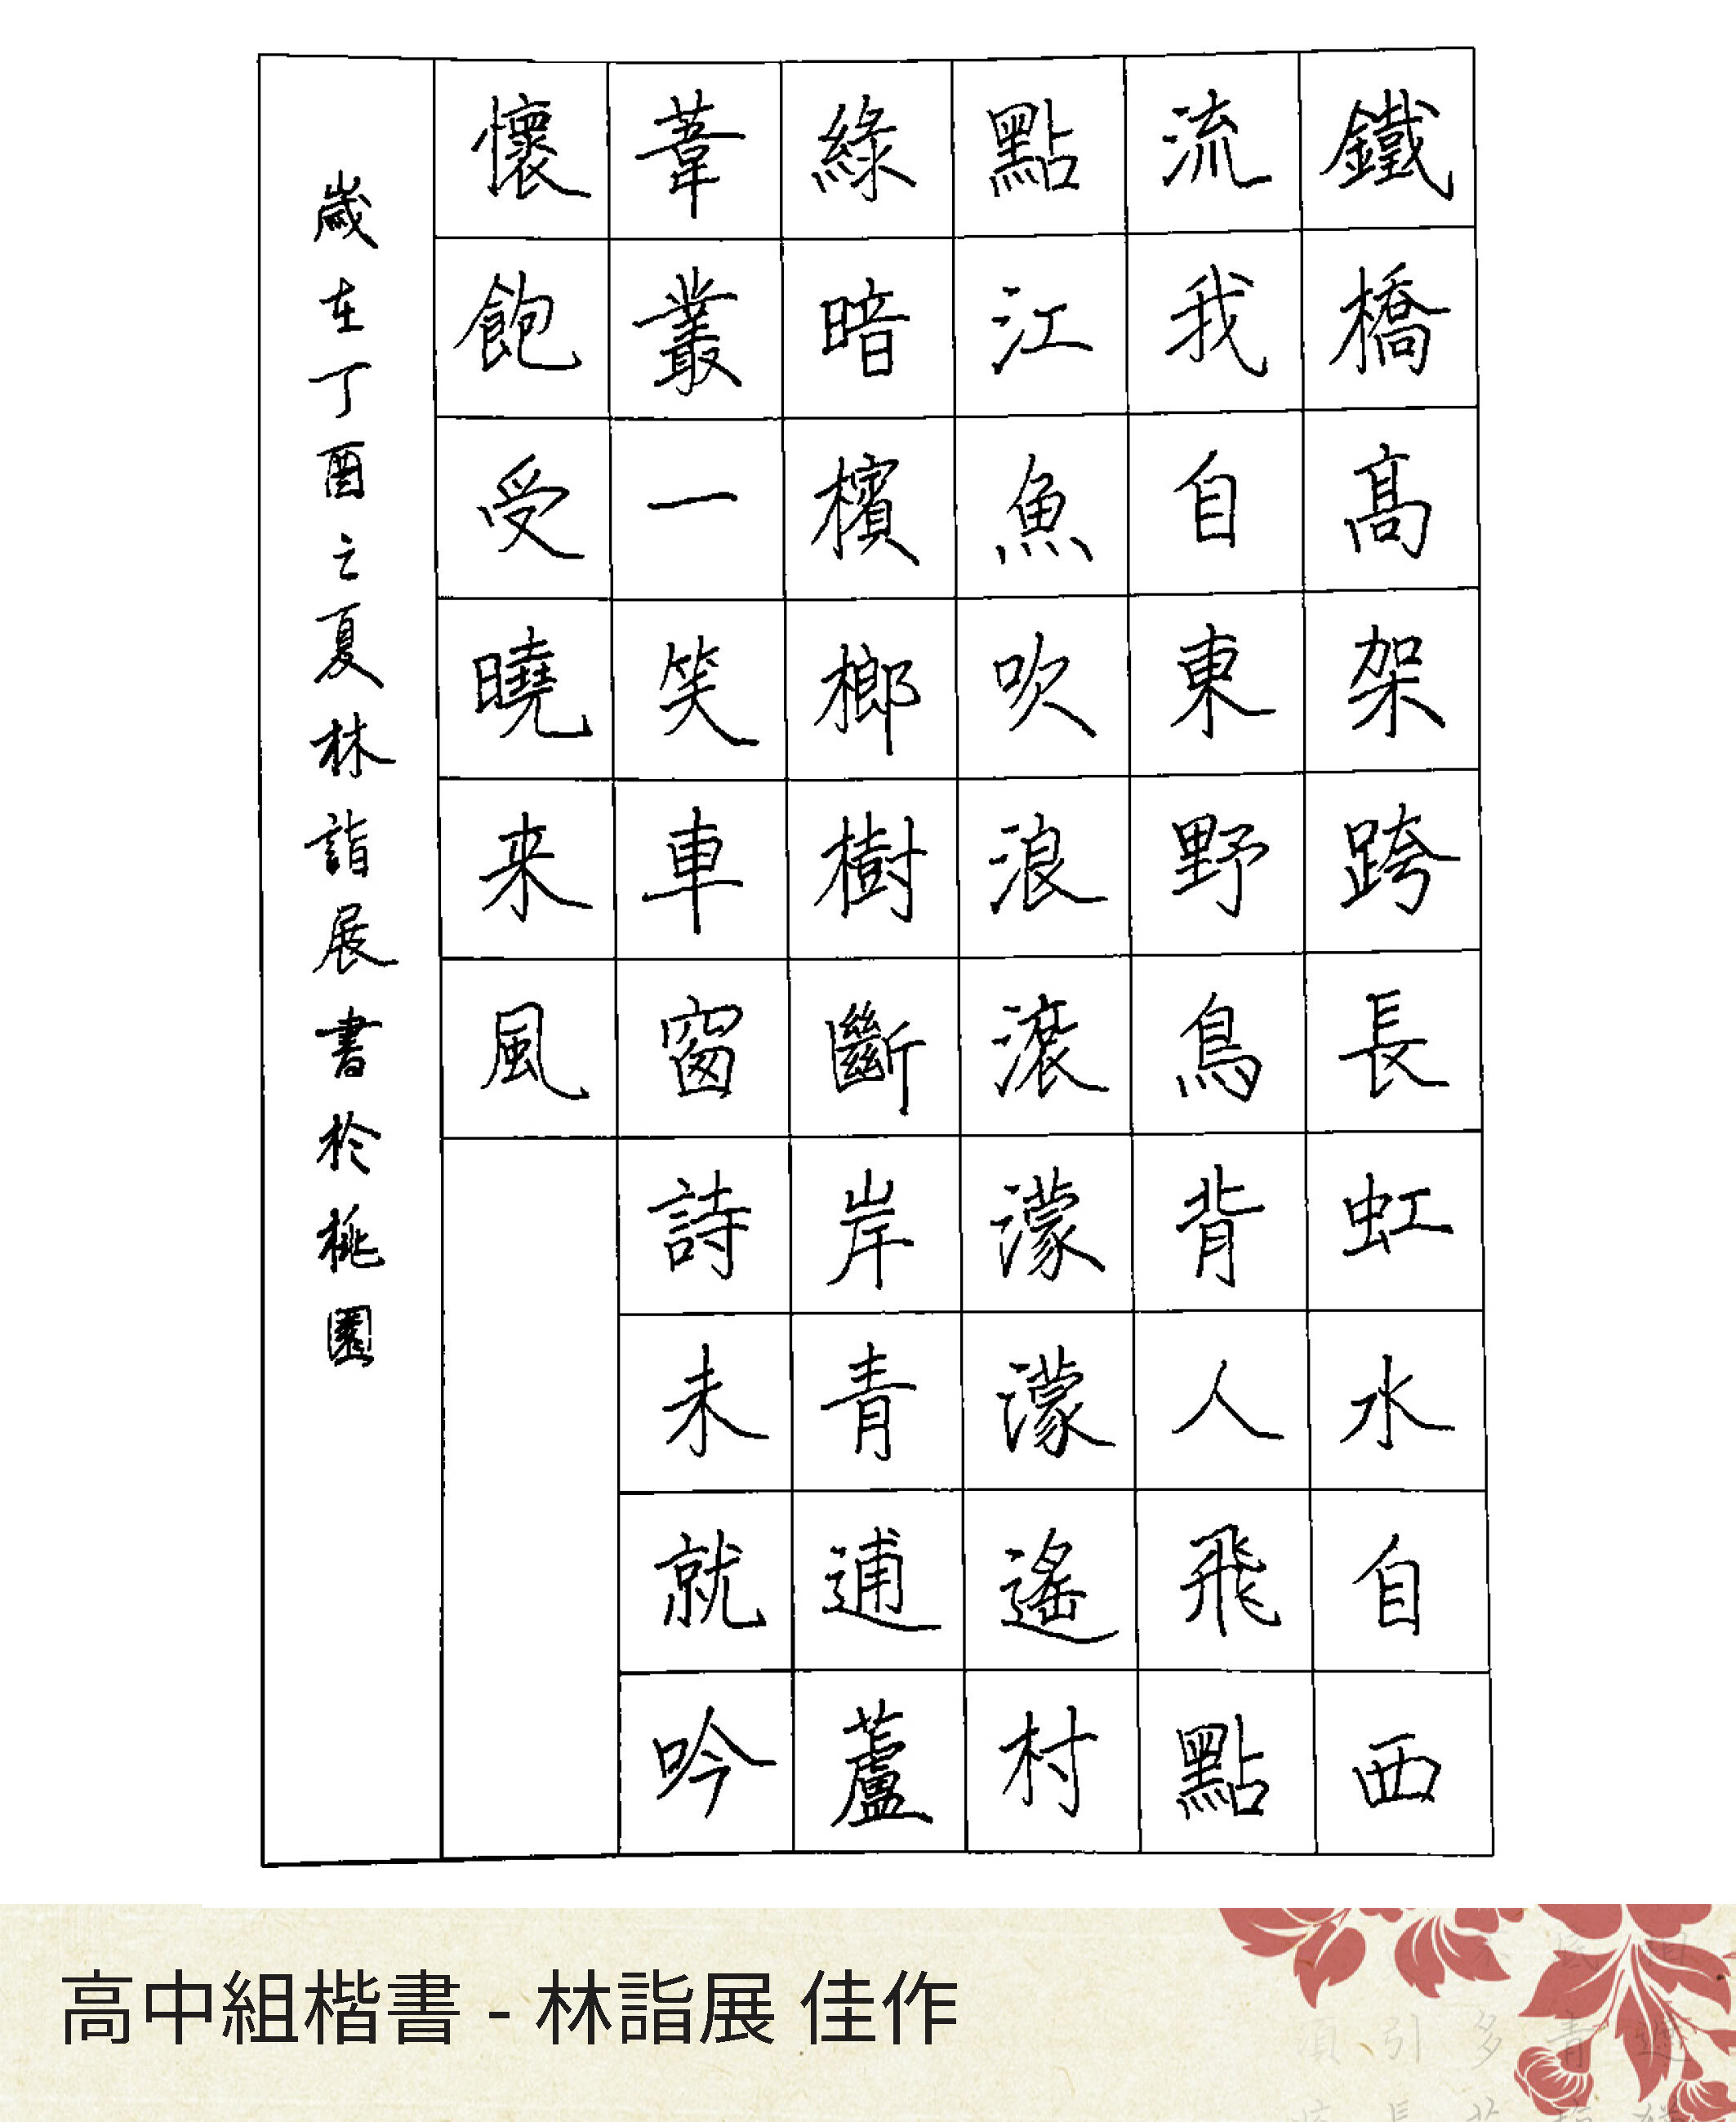 鐵橋高架跨長虹水自西
流我自東野鳥背人飛點
點江魚吹浪滾濛濛遙村
綠暗檳榔樹斷岸青逋蘆
葦叢一笑車窗詩未就吟
懷飽受曉来風
歲在丁酉之夏林詣展書於桃園
高中組楷書 - 林詣展 佳作